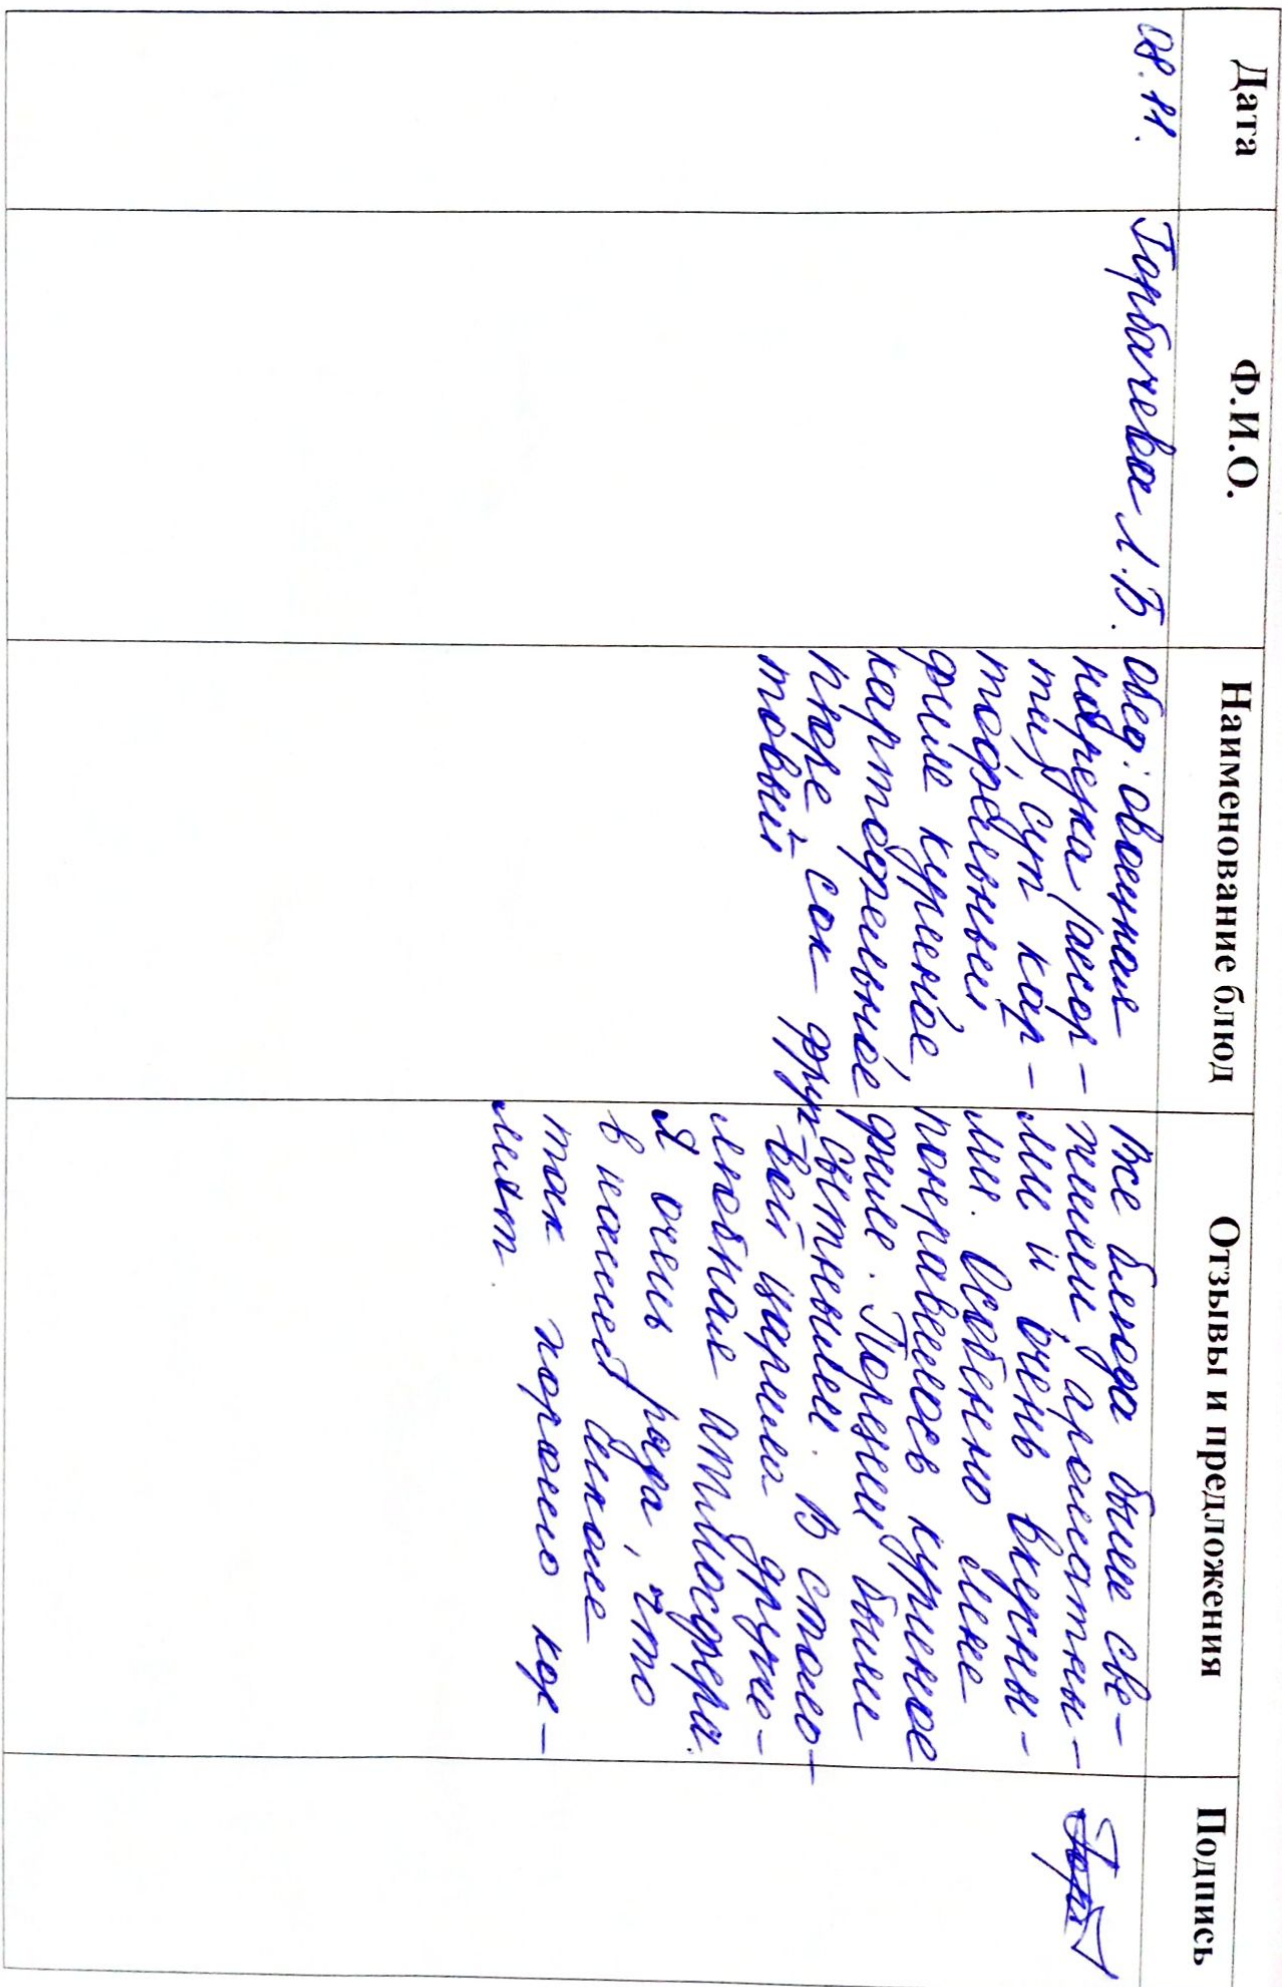 Дата Ф.И.О. Наименование блюд Отзывы и предложения Подпись
08.11.
Горбачева Л.В.
обед: овощная
нарезка /ассор-
ти/, суп кар-
тофельный,
филе куриное,
картофельное
пюре, сок фрук-
товый
Все блюда были све-
жими, ароматны-
ми и очень вкусны-
ми. Особенно мне
понравилось куриное
филе. Порции были
сытными. В столо-
вой царила друже-
любная атмосфера.
Я очень рада, что
в нашей школе
так хорошо кор-
мят.